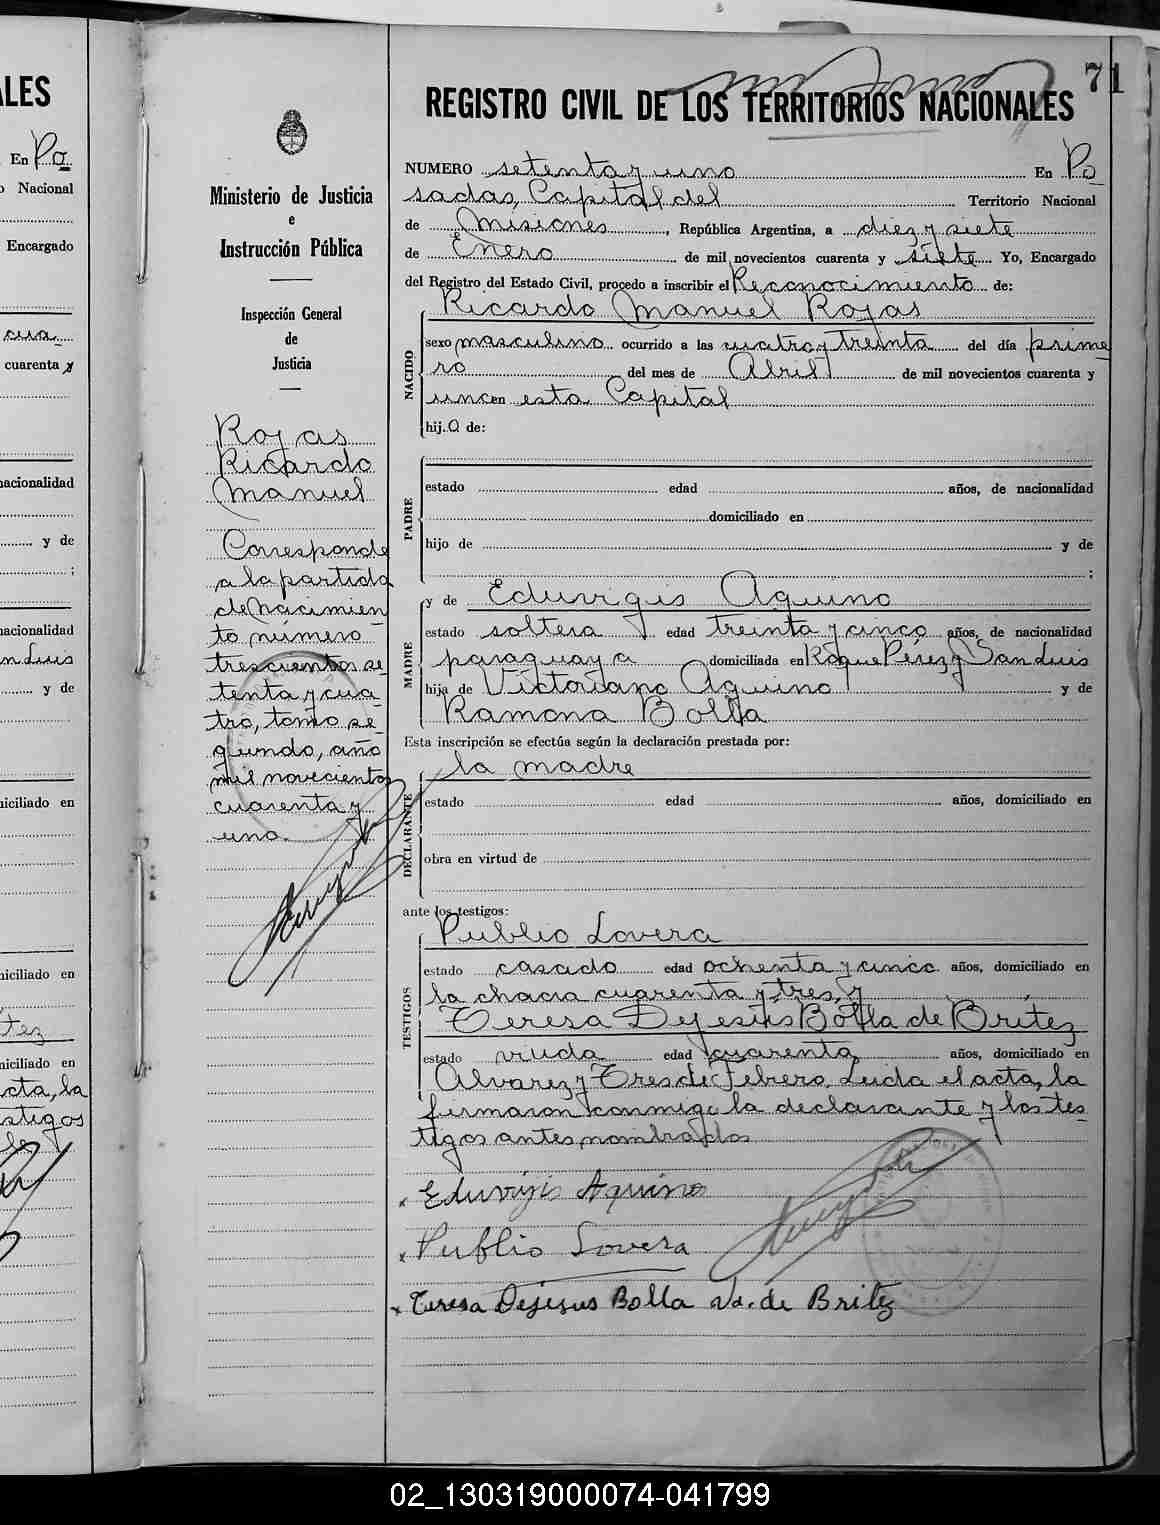 ALES
En Po
Nacional
Encargado
cua
cuarenta y
nacionalidad
y de
;
nacionalidad
n Luis
y de
niciliado en
niciliado en
tez
niciliado en
acta, la
stigos
71
REGISTRO CIVIL DE LOS TERRITORIOS NACIONALES
Ministerio de Justicia
e
Instrucción Pública
Inspección General
de
Justicia
Rojas
Ricardo
Manuel
Corresponde
a la partida
de Nacimien
to número
trescientos se-
tenta y cua-
tro, tomo se-
gundo, año
mil novecientos
cuarenta y
uno.
NUMERO setenta y uno En Po
sadas, Capital del Territorio Nacional
de Misiones, República Argentina, a diez y siete
de Enero de mil novecientos cuarenta y siete Yo, Encargado
del Registro del Estado Civil, procedo a inscribir el Reconocimiento de:
Ricardo Manuel Rojas
NACIDO
sexo masculino ocurrido a las cuatro y treinta del día prime-
ro del mes de Abril de mil novecientos cuarenta y
uno en esta Capital
hij.o de:
PADRE
estado edad años, de nacionalidad
domiciliado en
hijo de y de
;
MADRE
y de Eduvigis Aquino
estado soltera edad treinta y cinco años, de nacionalidad
paraguaya domiciliada en Roque Pérez y San Luis
hija de Victoriano Aquino y de
Ramona Bolla
Esta inscripción se efectúa según la declaración prestada por:
DECLARANTE
la madre
estado edad años, domiciliado en
obra en virtud de
ante los testigos:
TESTIGOS
Publio Lovera
estado casado edad ochenta y cinco años, domiciliado en
la chacra cuarenta y tres, y
Teresa Dejesús Bolla de Britez
estado viuda edad cuarenta años, domiciliado en
Alvarez y Tres de Febrero. Leida el acta, la
firmaron conmigo la declarante y los tes-
tigos antes nombrados
x Eduvigis Aquino
x Publio Lovera
x Teresa Dejesus Bolla Vd. de Britez
02_130319000074-041799